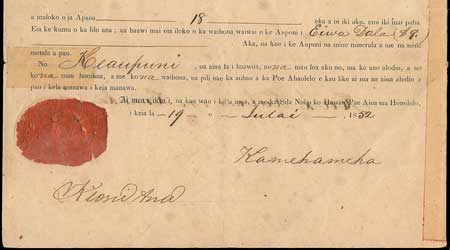 a maloko o ia Apana 18 eka a oi iki aku, emi iki mai paha
Eia ke kumu o ka lilo ana; ua haawi mai oia iloko o ka waihona waiwai o ke Aupuni i Eiwa Dala
Aka, na koe i ke Aupuni na mine minerala a me na mea
metala a pau.
No Keaupuni, ua aina la i haawiia, no na man loa aku no, ma ke ano alodio, a no
ko na mau hooilina, a me ko na waihona, ua pili nae ka auhau a ka Poe Ahaolelo e kau like ai ma na aina alodio a
pau i kela manawa i keia manawa.
ma Honolulu,
i keia la 19 o Iulai, 1852
Kamehameha
Keoni Ana